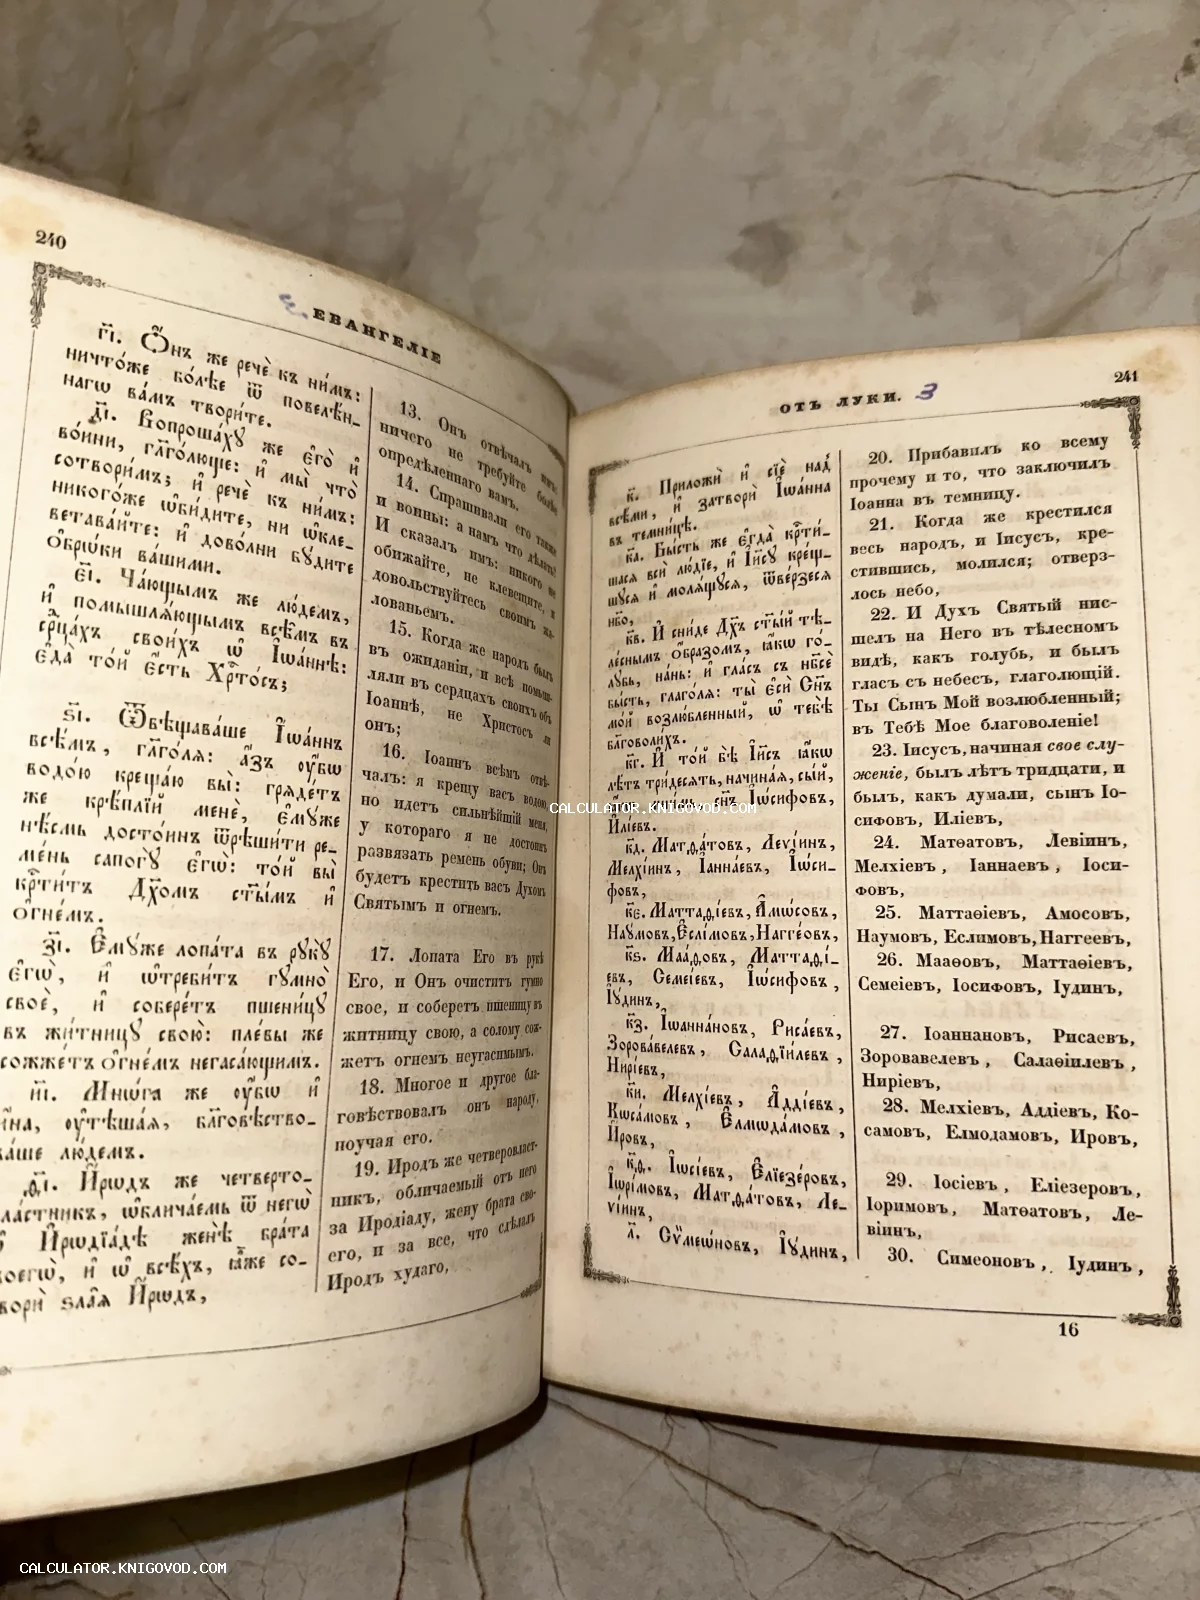 240
ЕВАНГЕЛІЕ
г҃і. Ѻ҆́нъ же речѐ къ ни̑мъ:
ничто́же бо́лѣе ѿ повелѣ́н_
нагѡ ва́мъ твори́те.
д҃і. Вопроша́хꙋ же є҆го̀ и҆
во́ини, гл҃го́люще: и҆ мы̀ что̀
сотвори́мъ; и҆ речѐ къ ни̑мъ:
никого́же ѡ҆би́дите, ни ѡ҆кле_
ветава́йте: и҆ дово́лни бꙋ́дите
ѻ҆бро́ки ва́шими.
є҃і. Ча́ющымъ же лю́демъ,
и҆ помышля́ющымъ всѣ̑мъ въ
срⷣца́хъ свои́хъ ѡ҆ І҆ѡа́ннѣ:
є҆да̀ то́й є҆́сть Хрⷭ҇то́съ;
ѕ҃і. Ѿвѣщава́ше І҆ѡа́ннъ
всѣ̑мъ, гл҃го́ля: а҆́зъ ᲂу҆́бѡ
водо́ю креща́ю вы̀: гряде́тъ
же крѣ́плїй менє̀, є҆мꙋ́же
нѣ́смь досто́инъ ѿрѣши́ти ре_
ме́нь сапогꙋ̀ є҆гѡ̀: то́й вы̀
крⷭ҇ти́тъ Дх҃омъ ст҃ы́мъ и҆
ѻ҆гне́мъ.
з҃і. Є҆мꙋ́же лопа́та въ рꙋкꙋ̀
є҆гѡ̀, и҆ ѡ҆треби́тъ гꙋмно̀
своѐ, и҆ собере́тъ пшени́цꙋ
въ жи́тницꙋ свою̀: пле́вы же
сожже́тъ ѻ҆гне́мъ негаса́ющимъ.
и҃і. Мнѡ́га же ᲂу҆́бѡ и҆
и҆́на, ᲂу҆тѣша́я, бл҃говѣ́ство_
ва́ше лю́демъ.
ѳ҃і. И҆́рѡдъ же четверто_
вла́стникъ, ѡ҆блича́емь ѿ негѡ̀
ѡ҆ И҆рѡдїа́дѣ женѣ̀ бра́та
своегѡ̀, и҆ ѡ҆ всѣ́хъ, ꙗ҆̀же со_
творѝ ѕла̑я И҆́рѡдъ,
13. Онъ отвѣчалъ имъ:
ничего не требуйте болѣе
опредѣленнаго вамъ.
14. Спрашивали его также
и воины: а намъ что дѣлать?
И сказалъ имъ: никого не
обижайте, не клевещите, и
довольствуйтесь своимъ жа-
лованьемъ.
15. Когда же народъ былъ
въ ожиданіи, и всѣ помыш-
ляли въ сердцахъ своихъ объ
Іоаннѣ, не Христосъ ли
онъ;
16. Іоаннъ всѣмъ отвѣ-
чалъ: я крещу васъ водою,
но идетъ сильнѣйшій меня,
у котораго я не достоинъ
развязать ремень обуви; Онъ
будетъ крестить васъ Духомъ
Святымъ и огнемъ.
17. Лопата Его въ рукѣ
Его, и Онъ очиститъ гумно
свое, и соберетъ пшеницу въ
житницу свою, а солому сож-
жетъ огнемъ неугасимымъ.
18. Многое и другое бла-
говѣствовалъ онъ народу,
поучая его.
19. Иродъ же четверовласт-
никъ, обличаемый отъ него
за Иродіаду, жену брата сво-
его, и за все, что сдѣлалъ
Иродъ худаго,
241
ОТЪ ЛУКИ. 3
к҃. Приложѝ и҆ сїѐ над̾
всѣ́ми, и҆ затворѝ І҆ѡа́нна
въ темни́цѣ.
к҃а. Бы́сть же є҆гда̀ крⷭ҇ти́_
шася всѝ лю́дїе, и҆ І҆и҃сꙋ кре́щ_
шꙋся и҆ моля́щꙋся, ѿве́рзеся
не́бо,
к҃в. И҆ сни́де Дх҃ъ ст҃ы́й тѣ_
ле́снымъ ѻ҆́бразомъ, ꙗ҆́кѡ го́_
лꙋбь, на́нь: и҆ гла́съ съ нб҃сѐ
бы́сть, глаго́ля: ты̀ є҆сѝ Сн҃ъ
мо́й возлю́бленный, ѡ҆ тебѣ̀
бл҃говоли́хъ.
к҃г. И҆ то́й бѣ̀ І҆и҃съ ꙗ҆́кѡ
лѣ́тъ три́десять, начина́я, сы́й,
сн҃ъ І҆ѡ́сифовъ,
И҆лі́евъ.
к҃д. Матѳа́товъ, Леѵі́инъ,
Мелхі́инъ, І҆анна́евъ, І҆ѡ́си_
фовъ,
к҃є. Маттаѳі́евъ, А҆мѡ́совъ,
Наꙋ́мовъ, Є҆слі́мовъ, Нагге́овъ,
к҃ѕ. Маа́ѳовъ, Маттаѳі́_
евъ, Семеі́евъ, І҆ѡ́сифовъ,
І҆ꙋ́динъ,
к҃з. І҆ѡанна́новъ, Риса́евъ,
Зорова́велевъ, Салаѳїи́левъ,
Нирі́евъ,
к҃и. Мелхі́евъ, А҆дді́евъ,
Кѡса́мовъ, Є҆лмѡда́мовъ,
И҆́ровъ,
к҃ѳ. І҆ѡсі́евъ, Є҆лїезе́ровъ,
І҆ѡрі́мовъ, Матѳа́товъ, Ле_
ѵі́инъ,
л҃. Сѷмеѡ́новъ, І҆ꙋ́динъ,
20. Прибавилъ ко всему
прочему и то, что заключилъ
Іоанна въ темницу.
21. Когда же крестился
весь народъ, и Іисусъ, кре-
стившись, молился; отверз-
лось небо,
22. И Духъ Святый нис-
шелъ на Него въ тѣлесномъ
видѣ, какъ голубь, и былъ
гласъ съ небесъ, глаголющій.
Ты Сынъ Мой возлюбленный;
въ Тебѣ Мое благоволеніе!
23. Іисусъ, начиная свое слу-
женіе, былъ лѣтъ тридцати, и
былъ, какъ думали, сынъ Іо-
сифовъ, Иліевъ,
24. Матѳатовъ, Левіинъ,
Мелхіевъ, Іаннаевъ, Іоси-
фовъ,
25. Маттаѳіевъ, Амосовъ,
Наумовъ, Еслимовъ, Наггеевъ,
26. Мааѳовъ, Маттаѳіевъ,
Семеіевъ, Іосифовъ, Іудинъ,
27. Іоаннановъ, Рисаевъ,
Зоровавелевъ, Салаѳіилевъ,
Ниріевъ,
28. Мелхіевъ, Аддіевъ, Ко-
самовъ, Елмодамовъ, Ировъ,
29. Іосіевъ, Еліезеровъ,
Іоримовъ, Матѳатовъ, Ле-
віинъ,
30. Симеоновъ, Іудинъ,
16
CALCULATOR.KNIGOVOD.COM
CALCULATOR.KNIGOVOD.COM